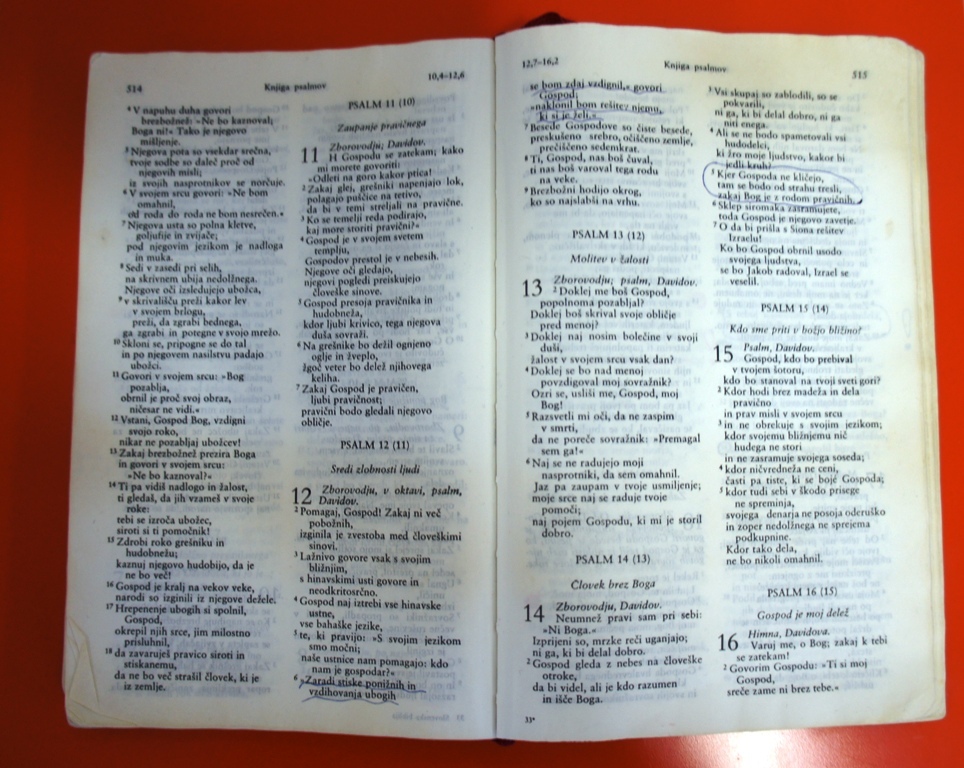 514
Knjiga psalmov
10,4–12,6
⁴ V napuhu duha govori
brezbožnež: »Ne bo kaznoval;
Boga ni!« Tako je njegovo
mišljenje.
⁵ Njegova pota so vsekdar srečna,
tvoje sodbe so daleč proč od
njegovih misli;
iz svojih nasprotnikov se norčuje.
⁶ V svojem srcu govori: »Ne bom
omahnil,
od roda do roda ne bom nesrečen.«
⁷ Njegova usta so polna kletve,
goljufije in zvijače;
pod njegovim jezikom je nadloga
in muka.
⁸ Sedi v zasedi pri selih,
na skrivnem ubija nedolžnega.
Njegove oči izsledujejo ubožca,
⁹ v skrivališču preži kakor lev
v svojem brlogu,
preži, da zgrabi bednega,
ga zgrabi in potegne v svojo mrežo.
¹⁰ Skloni se, pripogne se do tal
in po njegovem nasilstvu padajo
ubožci.
¹¹ Govori v svojem srcu: »Bog
pozablja,
obrnil je proč svoj obraz,
ničesar ne vidi.«
¹² Vstani, Gospod Bog, vzdigni
svojo roko,
nikar ne pozabljaj ubožcev!
¹³ Zakaj brezbožnež prezira Boga
in govori v svojem srcu:
»Ne bo kaznoval?«
¹⁴ Ti pa vidiš nadlogo in žalost,
ti gledaš, da jih vzameš v svoje
roke:
tebi se izroča ubožec,
siroti si ti pomočnik!
¹⁵ Zdrobi roko grešniku in
hudobnežu;
kaznuj njegovo hudobijo, da je
ne bo več!
¹⁶ Gospod je kralj na vekov veke,
narodi so izginili iz njegove dežele.
¹⁷ Hrepenenje ubogih si spolnil,
Gospod,
okrepil njih srce, jim milostno
prisluhnil,
¹⁸ da zavaruješ pravico siroti in
stiskanemu,
da ne bo več strašil človek, ki je
iz zemlje.
PSALM 11 (10)
Zaupanje pravičnega
11 Zborovodju, Davidov.
H Gospodu se zatekam; kako
mi morete govoriti:
»Odleti na goro kakor ptica!
² Zakaj glej, grešniki napenjajo lok,
polagajo puščice na tetivo,
da bi v temi streljali na pravične.
³ Ko se temelji reda podirajo,
kaj more storiti pravični?«
⁴ Gospod je v svojem svetem
templju,
Gospodov prestol je v nebesih.
Njegove oči gledajo,
njegovi pogledi preiskujejo
človeške sinove.
⁵ Gospod presoja pravičnika in
hudobneža,
kdor ljubi krivico, tega njegova
duša sovraži.
⁶ Na grešnike bo dežil ognjeno
oglje in žveplo,
žgoč veter bo delež njihovega
keliha.
⁷ Zakaj Gospod je pravičen,
ljubi pravičnost;
pravični bodo gledali njegovo
obličje.
PSALM 12 (11)
Sredi zlobnosti ljudi
12 Zborovodju, v oktavi, psalm,
Davidov.
² Pomagaj, Gospod! Zakaj ni več
pobožnih,
izginila je zvestoba med človeškimi
sinovi.
³ Lažnivo govore vsak s svojim
bližnjim,
s hinavskimi usti govore in
neodkritosrčno.
⁴ Gospod naj iztrebi vse hinavske
ustne,
vse bahaške jezike,
⁵ te, ki pravijo: »S svojim jezikom
smo močni;
naše ustnice nam pomagajo: kdo
nam je gospodar?«
⁶ »Zaradi stiske ponižnih in
vzdihovanja ubogih
12,7–16,2
Knjiga psalmov
515
se bom zdaj vzdignil,« govori
Gospod;
»naklonil bom rešitev njemu,
ki si je želi.«
⁷ Besede Gospodove so čiste besede,
preskušeno srebro, očiščeno zemlje,
prečiščeno sedemkrat.
⁸ Ti, Gospod, nas boš čuval,
ti nas boš varoval tega rodu
na veke.
⁹ Brezbožni hodijo okrog,
ko so najslabši na vrhu.
PSALM 13 (12)
Molitev v žalosti
13 Zborovodju; psalm, Davidov.
² Doklej me boš Gospod,
popolnoma pozabljal?
Doklej boš skrival svoje obličje
pred menoj?
³ Doklej naj nosim bolečine v svoji
duši,
žalost v svojem srcu vsak dan?
⁴ Doklej se bo nad menoj
povzdigoval moj sovražnik?
Ozri se, usliši me, Gospod, moj
Bog!
⁵ Razsvetli mi oči, da ne zaspim
v smrti,
da ne poreče sovražnik: »Premagal
sem ga!«
⁶ Naj se ne radujejo moji
nasprotniki, da sem omahnil.
Jaz pa zaupam v tvoje usmiljenje;
moje srce naj se raduje tvoje
pomoči;
naj pojem Gospodu, ki mi je storil
dobro.
PSALM 14 (13)
Človek brez Boga
14 Zborovodju, Davidov.
Neumnež pravi sam pri sebi:
»Ni Boga.«
Izprijeni so, mrzke reči uganjajo;
ni ga, ki bi delal dobro.
² Gospod gleda z nebes na človeške
otroke,
da bi videl, ali je kdo razumen
in išče Boga.
33*
³ Vsi skupaj so zablodili, so se
pokvarili,
ni ga, ki bi delal dobro, ni ga
niti enega.
⁴ Ali se ne bodo spametovali vsi
hudodelci,
ki žro moje ljudstvo, kakor bi
jedli kruh?
⁵ Kjer Gospoda ne kličejo,
tam se bodo od strahu tresli,
zakaj Bog je z rodom pravičnih.
⁶ Sklep siromaka zasramujete,
toda Gospod je njegovo zavetje.
⁷ O da bi prišla s Siona rešitev
Izraelu!
Ko bo Gospod obrnil usodo
svojega ljudstva,
se bo Jakob radoval, Izrael se
veselil.
PSALM 15 (14)
Kdo sme priti v božjo bližino?
15 Psalm, Davidov.
Gospod, kdo bo prebival
v tvojem šotoru,
kdo bo stanoval na tvoji sveti gori?
² Kdor hodi brez madeža in dela
pravično
in prav misli v svojem srcu
³ in ne obrekuje s svojim jezikom;
kdor svojemu bližnjemu nič
hudega ne stori
in ne zasramuje svojega soseda;
⁴ kdor ničvredneža ne ceni,
časti pa tiste, ki se boje Gospoda;
⁵ kdor tudi sebi v škodo prisege
ne spreminja,
svojega denarja ne posoja oderuško
in zoper nedolžnega ne sprejema
podkupnine.
Kdor tako dela,
ne bo nikoli omahnil.
PSALM 16 (15)
Gospod je moj delež
16 Himna, Davidova.
Varuj me, o Bog; zakaj k tebi
se zatekam!
² Govorim Gospodu: »Ti si moj
Gospod,
sreče zame ni brez tebe.«